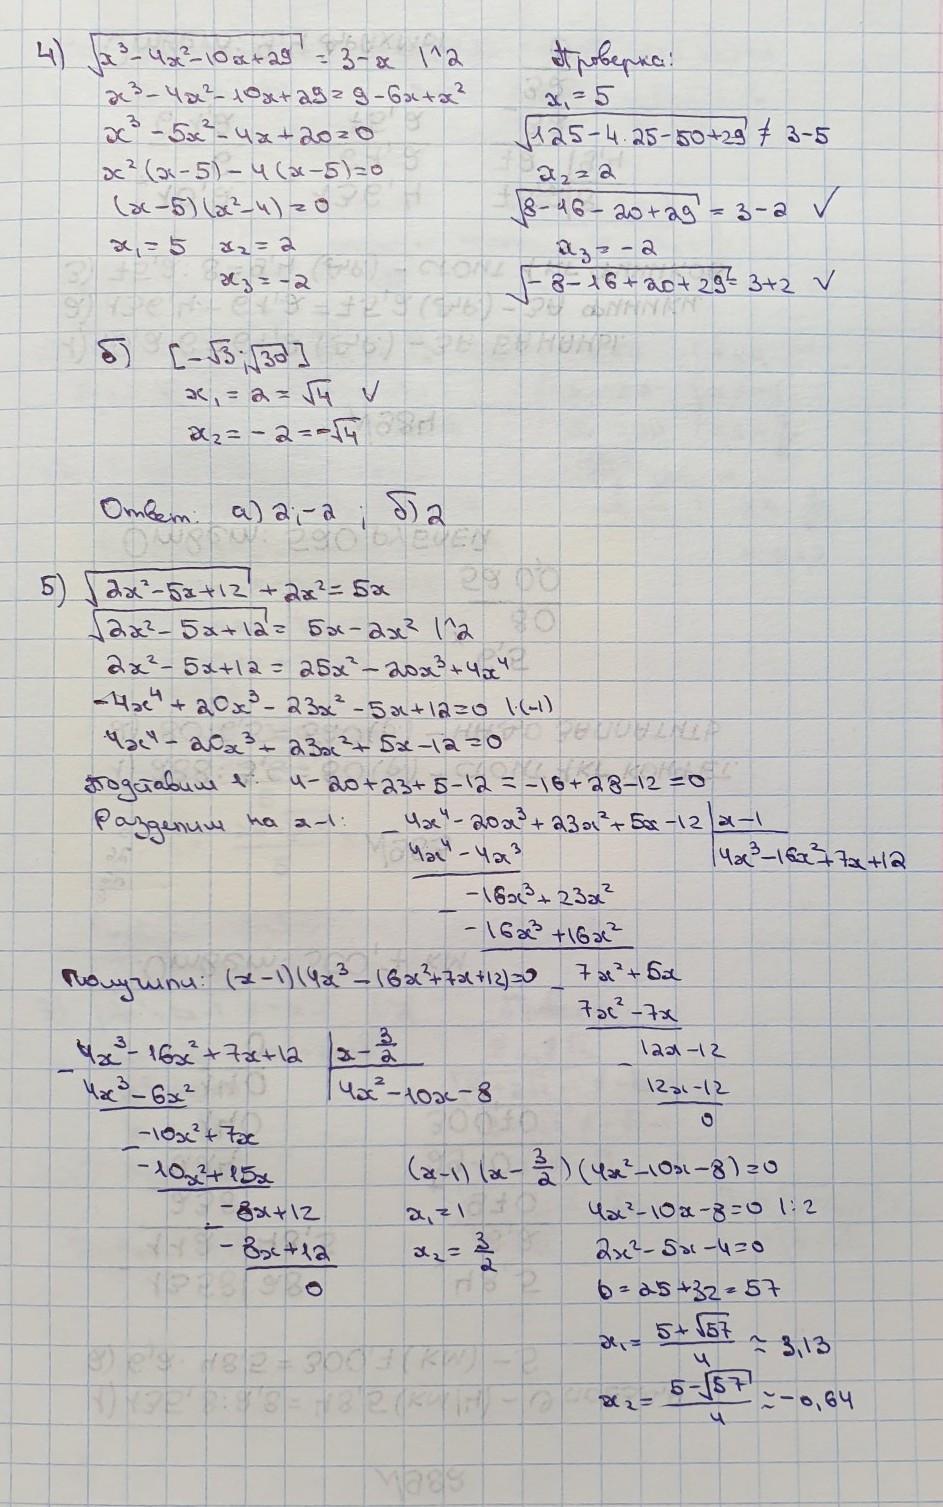 4) √(x³-4x²-10x+29) = 3-x |^2
x³-4x²-10x+29=9-6x+x²
x³-5x²-4x+20=0
x²(x-5)-4(x-5)=0
(x-5)(x²-4)=0
x₁=5 x₂=2
x₃=-2
Проверка:
x₁=5
√(125-4.25-50+29) ≠ 3-5
x₂=2
√(8-16-20+29) = 3-2 ✓
x₃=-2
√(-8-16+20+29) = 3+2 ✓
б) [-√3;√30]
x₁=2=√4 ✓
x₂=-2=-√4
Ответ: а) 2;-2 ; б) 2
5) √(2x²-5x+12) + 2x²=5x
√(2x²-5x+12) = 5x-2x² |^2
2x²-5x+12=25x²-20x³+4x⁴
-4x⁴+20x³-23x²-5x+12=0 |·(-1)
4x⁴-20x³+23x²+5x-12=0
Подставим 1: 4-20+23+5-12=-16+28-12=0
Разделим на x-1: -4x⁴-20x³+23x²+5x-12 |x-1
4x⁴-4x³ |4x³-16x²+7x+12
- -16x³+23x²
-16x³+16x²
Получили: (x-1)(4x³-16x²+7x+12)=0
- 7x²+5x
7x²-7x
- 12x-12
12x-12
0
- 4x³-16x²+7x+12 |x-3/2
4x³-6x² |4x²-10x-8
- -10x²+7x
-10x²+15x
- -8x+12
-8x+12
0
(x-1)(x-3/2)(4x²-10x-8)=0
x₁=1 4x²-10x-8=0 |:2
x₂=3/2 2x²-5x-4=0
D=25+32=57
x₁=(5+√57)/4 ≈ 3,13
x₂=(5-√57)/4 ≈ -0,64